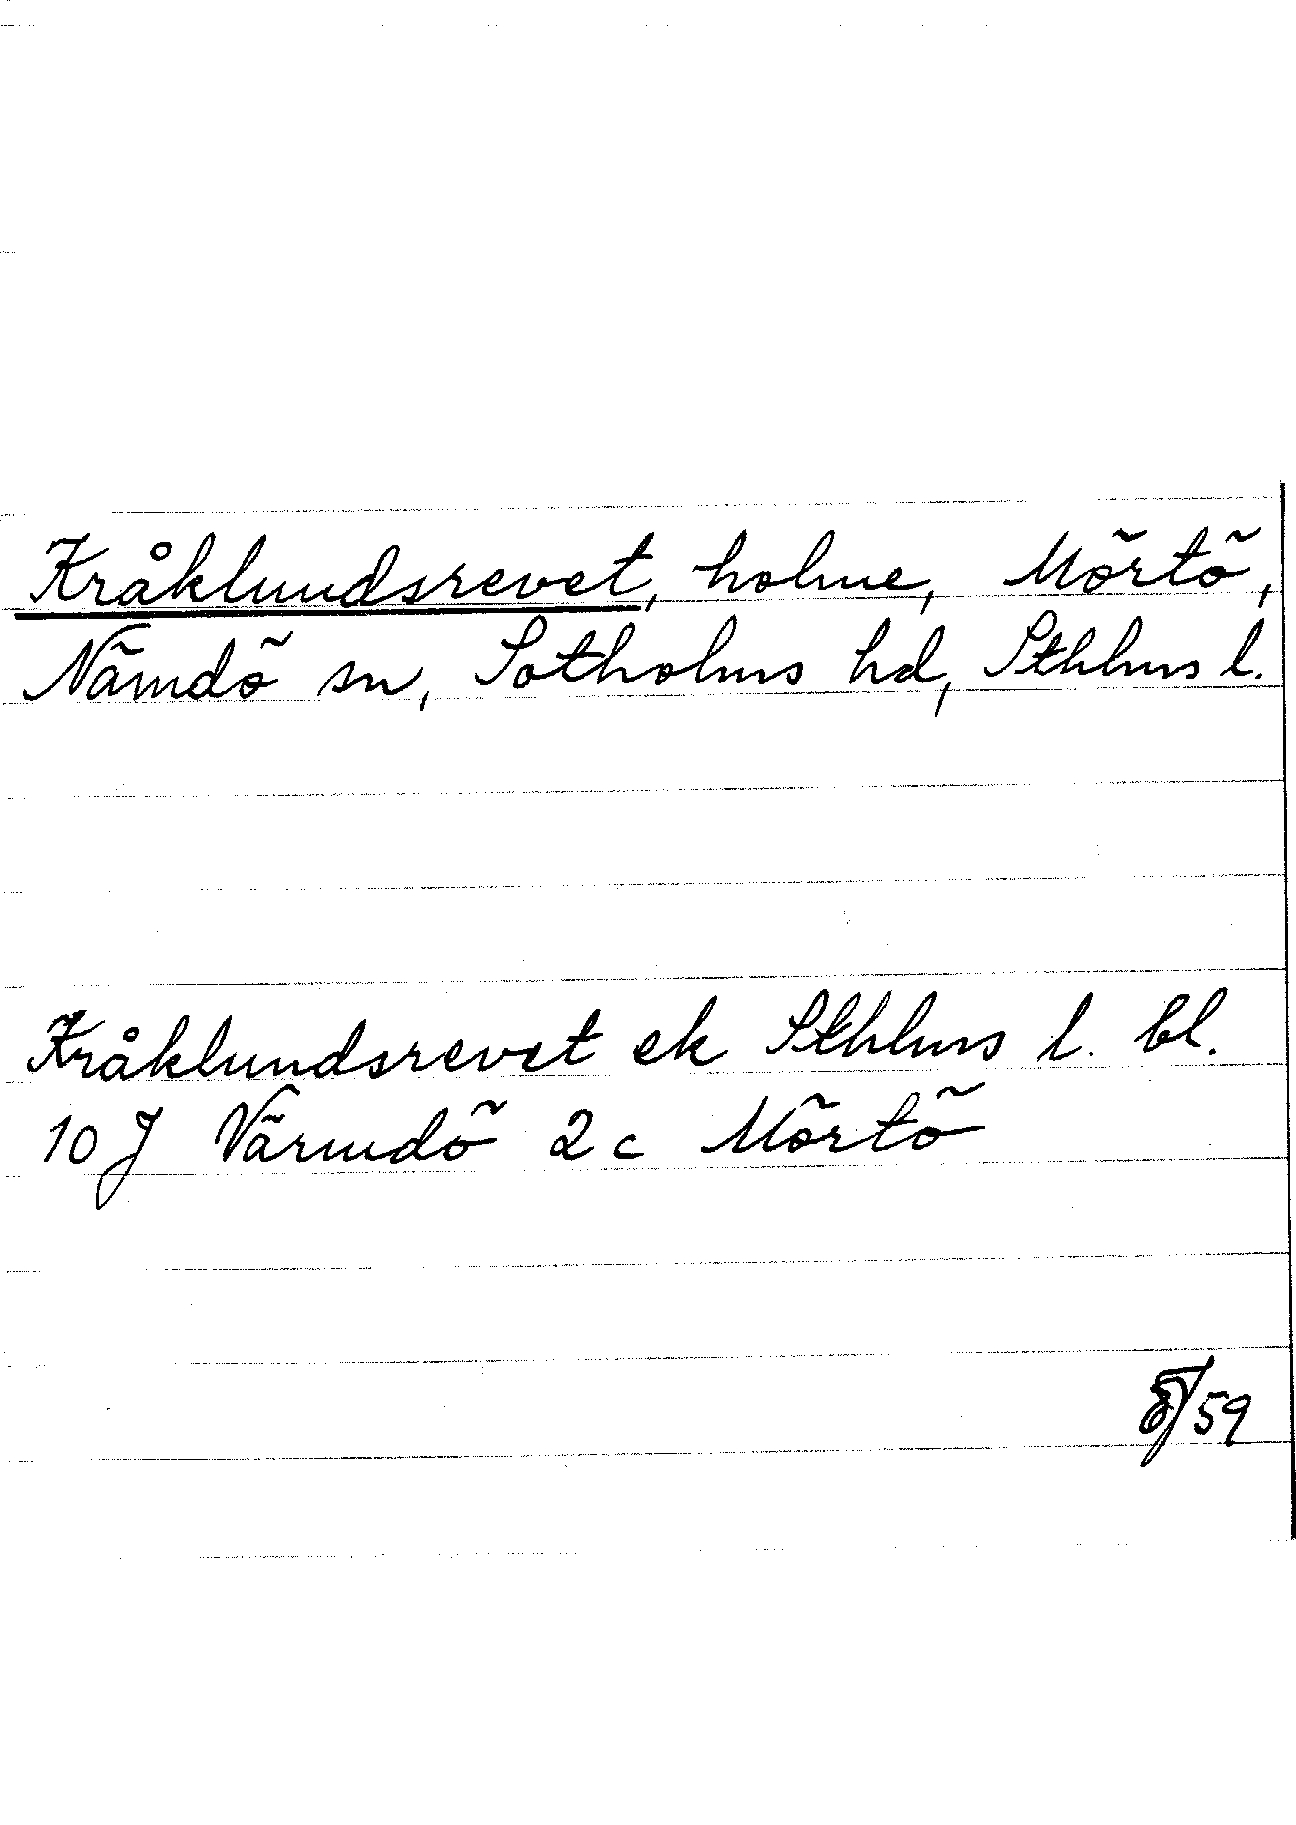 Kråklundsrevet, holme, Mörtö,
Nämdö sn, Sotholms hd, Sthlms l.
Kråklundsrevet ek Sthlms l. bl.
10 J Värmdö 2 c Mörtö
59